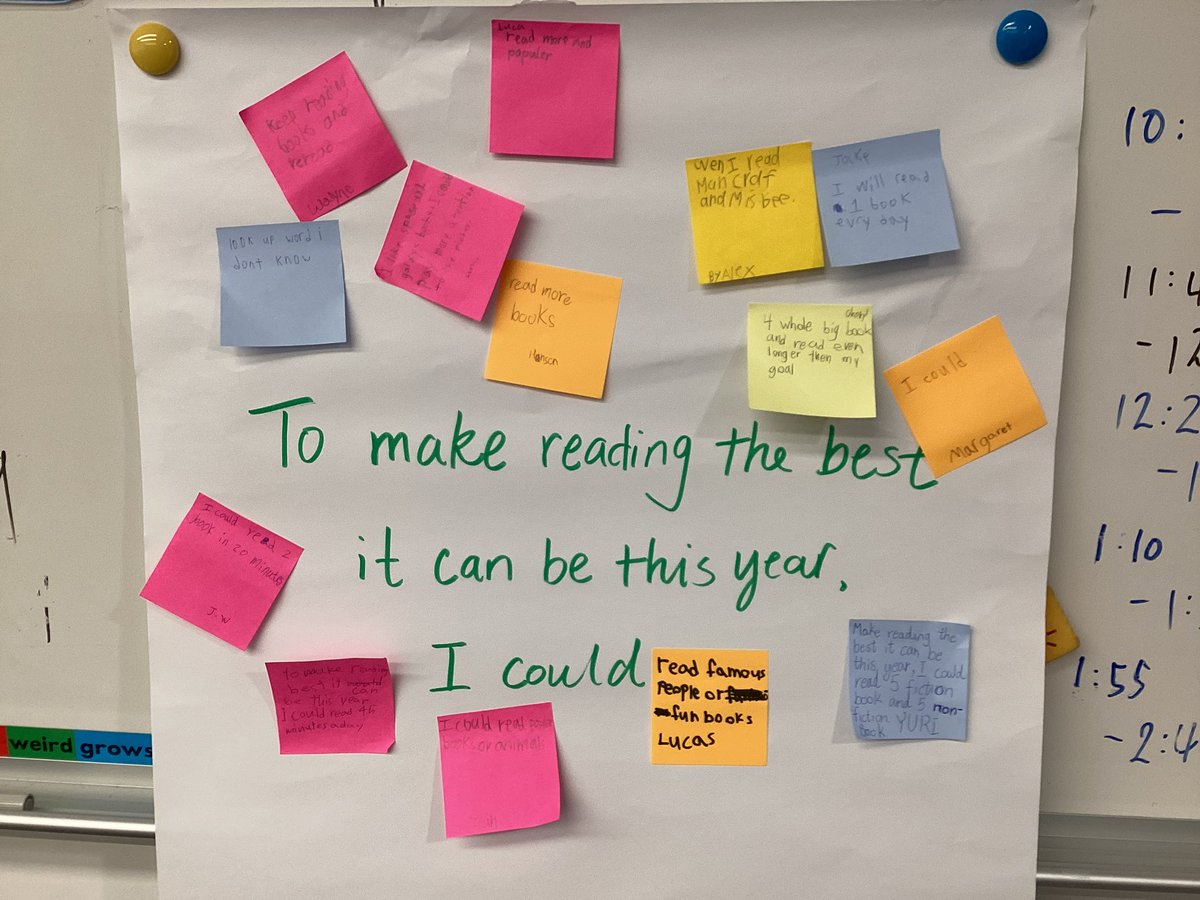 Luca
read more and
populer
keep reading
books and
reread
Wayne
look up word i
dont know
read more
books
Hanson
wen I read
Man Craf
and Misbee.
By ALEX
Jake
I will read
1 book
evry day
4 whole big book
and read even
longer then my
goal
I could
Margaret
To make reading the best
it can be this year,
I could
I could read 2
book in 20 minutes
J.W
I could read 46
minutes a day
I could read
books or animals
read famous
People or
fun books
Lucas
Make reading the
best it can be
this year, I could
read 5 fiction
book and 5 non-
fiction
book YURI
weird grows
10:
-
11:4
-12
12:2
-1
1:10
-1:
1:55
-2:4